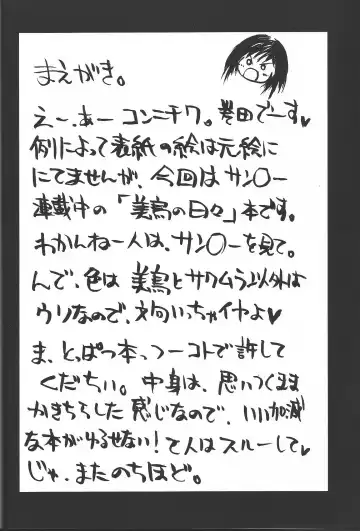 まえがき。
えー、あー コンニチワ。巻田でーす♥
例によって表紙の絵は元絵に
にてませんが、今回はサン〇ー
連載中の「美鳥の日々」本です。
わかんねー人は、サン〇ーを見て。
んで、色は 美鳥とサクムラ以外は
ウソなので、文句いっちゃイヤよ♥
ま、とっぱつ本っつーコトで許して
くだちい。中身は、思いつくまま
かきちらした感じなので、いい加減
な本がゆるせない!て人はスルーして♥
じゃ、またのちほど。